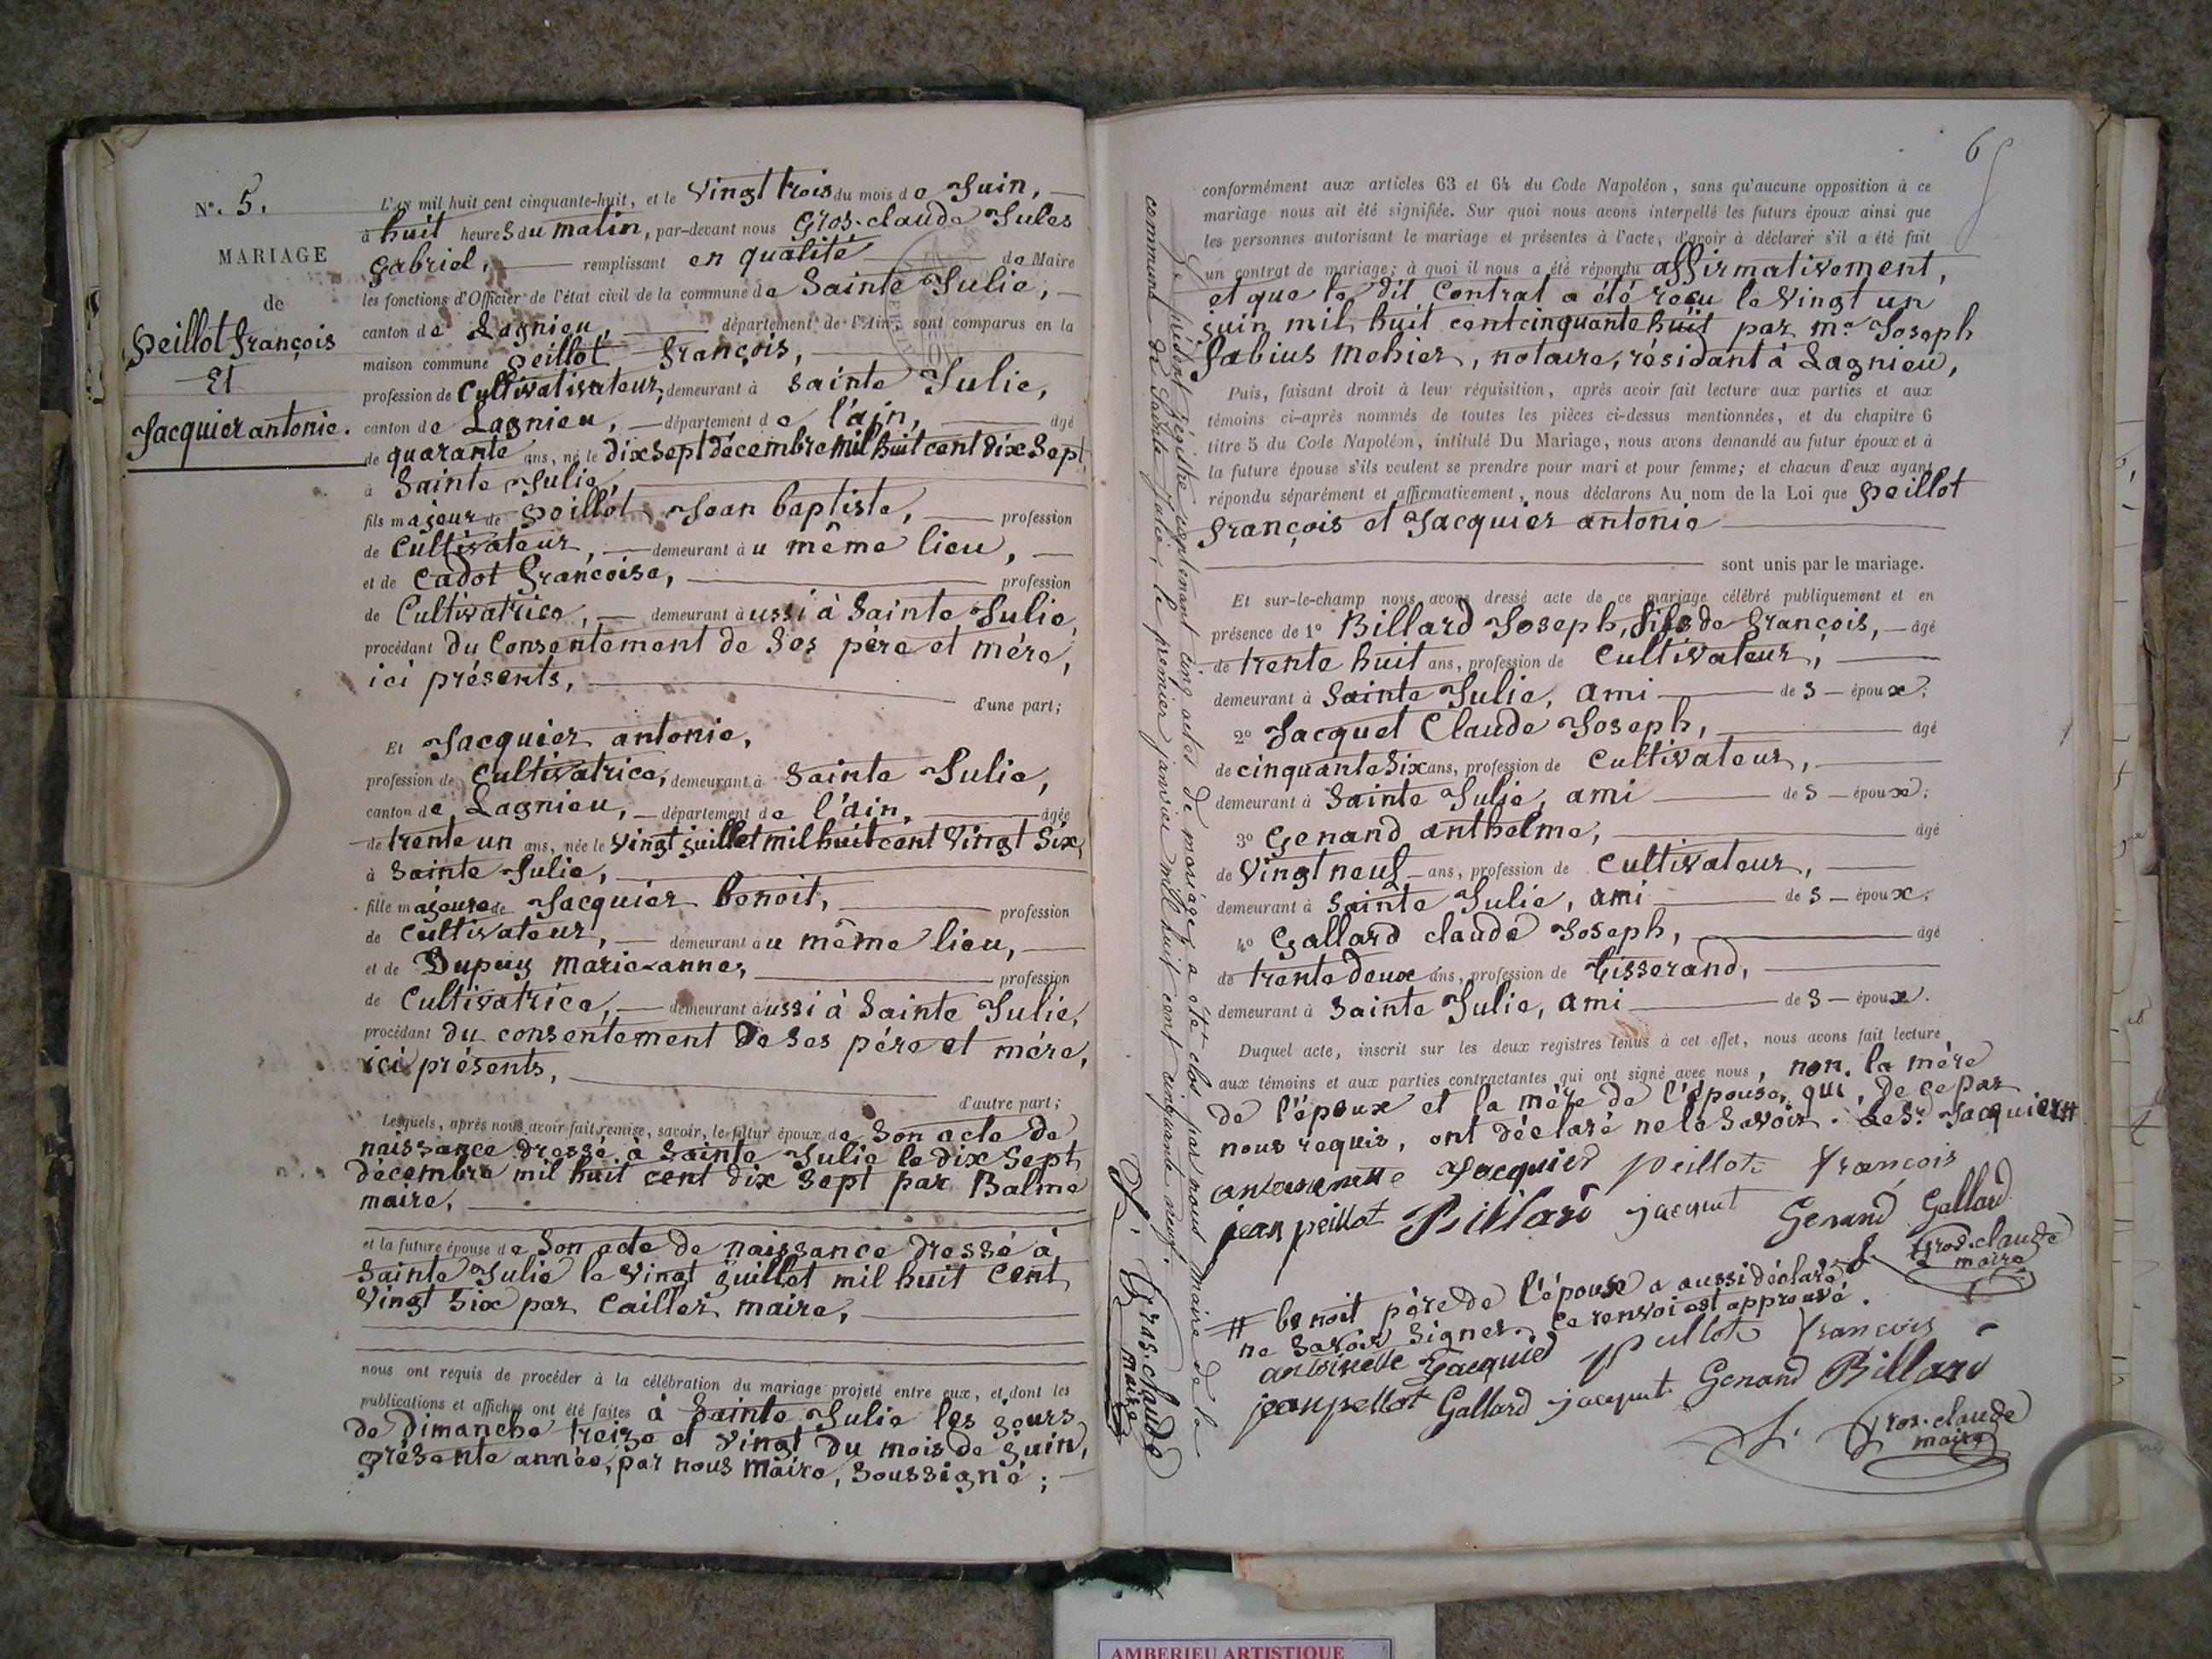 N°. 5.
MARIAGE
de
Peillot François
Et
Jacquier antonie.
L'AN mil huit cent cinquante-huit, et le Vingt trois du mois de Juin,
à huit heures du matin, par-devant nous Gros-claude Jules
gabriel, remplissant en qualité de Maire
les fonctions d'Officier de l'état civil de la commune de Sainte Julie,
canton de Lagnieu, département de l'Ain, sont comparus en la
maison commune Peillot François,
profession de Cultivativateur, demeurant à Sainte Julie,
canton de Lagnieu, département de l'ain, âgé
de quarante ans, né le dix Sept décembre mil huit cent dix Sept,
à Sainte Julie,
fils majeur de Peillot Jean baptiste, profession
de Cultivateur, demeurant au même lieu,
et de Cadot Françoise, profession
de Cultivatrice, demeurant aussi à Sainte Julie,
procédant du Consentement de Ses père et mère,
ici présents,
d'une part;
Et Jacquier antonie,
profession de Cultivatrice, demeurant à Sainte Julie,
canton de Lagnieu, département de l'ain, âgée
de trente un ans, née le Vingt juillet mil huit cent Vingt Six,
à Sainte Julie,
fille majeure de Jacquier benoit, profession
de Cultivateur, demeurant au même lieu,
et de Dupuy Marie-anne, profession
de Cultivatrice, demeurant aussi à Sainte Julie,
procédant du consentement de Ses père et mère,
ici présents,
d'autre part;
Lesquels, après nous avoir fait remise, savoir, le futur époux de Son acte de
naissance dressé à Sainte Julie le dix Sept
décembre mil huit cent dix Sept par Balme
maire,
et la future épouse de Son acte de naissance dressé à
Sainte Julie le Vingt juillet mil huit Cent
Vingt Six par Caillet maire,
nous ont requis de procéder à la célébration du mariage projeté entre eux, et dont les
publications et affiches ont été faites à Sainte Julie les jours
de dimanche treize et vingt du mois de juin,
présente année, par nous Maire, Soussigné;
6
conformément aux articles 63 et 64 du Code Napoléon, sans qu'aucune opposition à ce
mariage nous ait été signifiée. Sur quoi nous avons interpellé les futurs époux ainsi que
les personnes autorisant le mariage et présentes à l'acte, d'avoir à déclarer s'il a été fait
un contrat de mariage; à quoi il nous a été répondu affirmativement,
et que le dit Contrat a été reçu le Vingt un
juin mil huit cent cinquante huit par me Joseph
Fabius Mehier, notaire, résidant à Lagnieu,
Puis, faisant droit à leur réquisition, après avoir fait lecture aux parties et aux
témoins ci-après nommés de toutes les pièces ci-dessus mentionnées, et du chapitre 6
titre 5 du Code Napoléon, intitulé Du Mariage, nous avons demandé au futur époux et à
la future épouse s'ils veulent se prendre pour mari et pour femme; et chacun d'eux ayant
répondu séparément et affirmativement, nous déclarons Au nom de la Loi que Peillot
François et Jacquier antonie
sont unis par le mariage.
Et sur-le-champ nous avons dressé acte de ce mariage célébré publiquement et en
présence de 1° Billard Joseph, fils de François, âgé
de trente huit ans, profession de Cultivateur,
demeurant à Sainte Julie, ami des époux;
2° Jacquet Claude Joseph, âgé
de cinquante Six ans, profession de Cultivateur,
demeurant à Sainte Julie, ami des époux;
3° Genand anthelme, âgé
de Vingt neuf ans, profession de Cultivateur,
demeurant à Sainte Julie, ami des époux.
4° Gallard claude Joseph, âgé
de trente deux ans, profession de tisserand,
demeurant à Sainte Julie, ami des époux.
Duquel acte, inscrit sur les deux registres tenus à cet effet, nous avons fait lecture
aux témoins et aux parties contractantes qui ont signé avec nous, non, la mère
de l'époux et la mère de l'épouse, qui, de ce par
nous requis, ont déclaré ne le Savoir. Le Sr. Jacquier #
Jacquier peillot françois
jean peillot Billard jacquet Genand Gallard
J. Gros-claude
maire
# benoit père de l'épouse a aussi déclaré
ne Savoir Signer. Ce renvoi est approuvé.
antoinette Jacquier peillot françois
jean peillot Gallard jacquet Genand Billard
J. Gros-claude
maire
Le présent régistre contenant cinq actes de mariage, a été clos par nous maire de la
commune de Sainte Julie, le premier janvier mil huit cent cinquante neuf.
J. Gros-claude
maire
AMBERIEU ARTISTIQUE